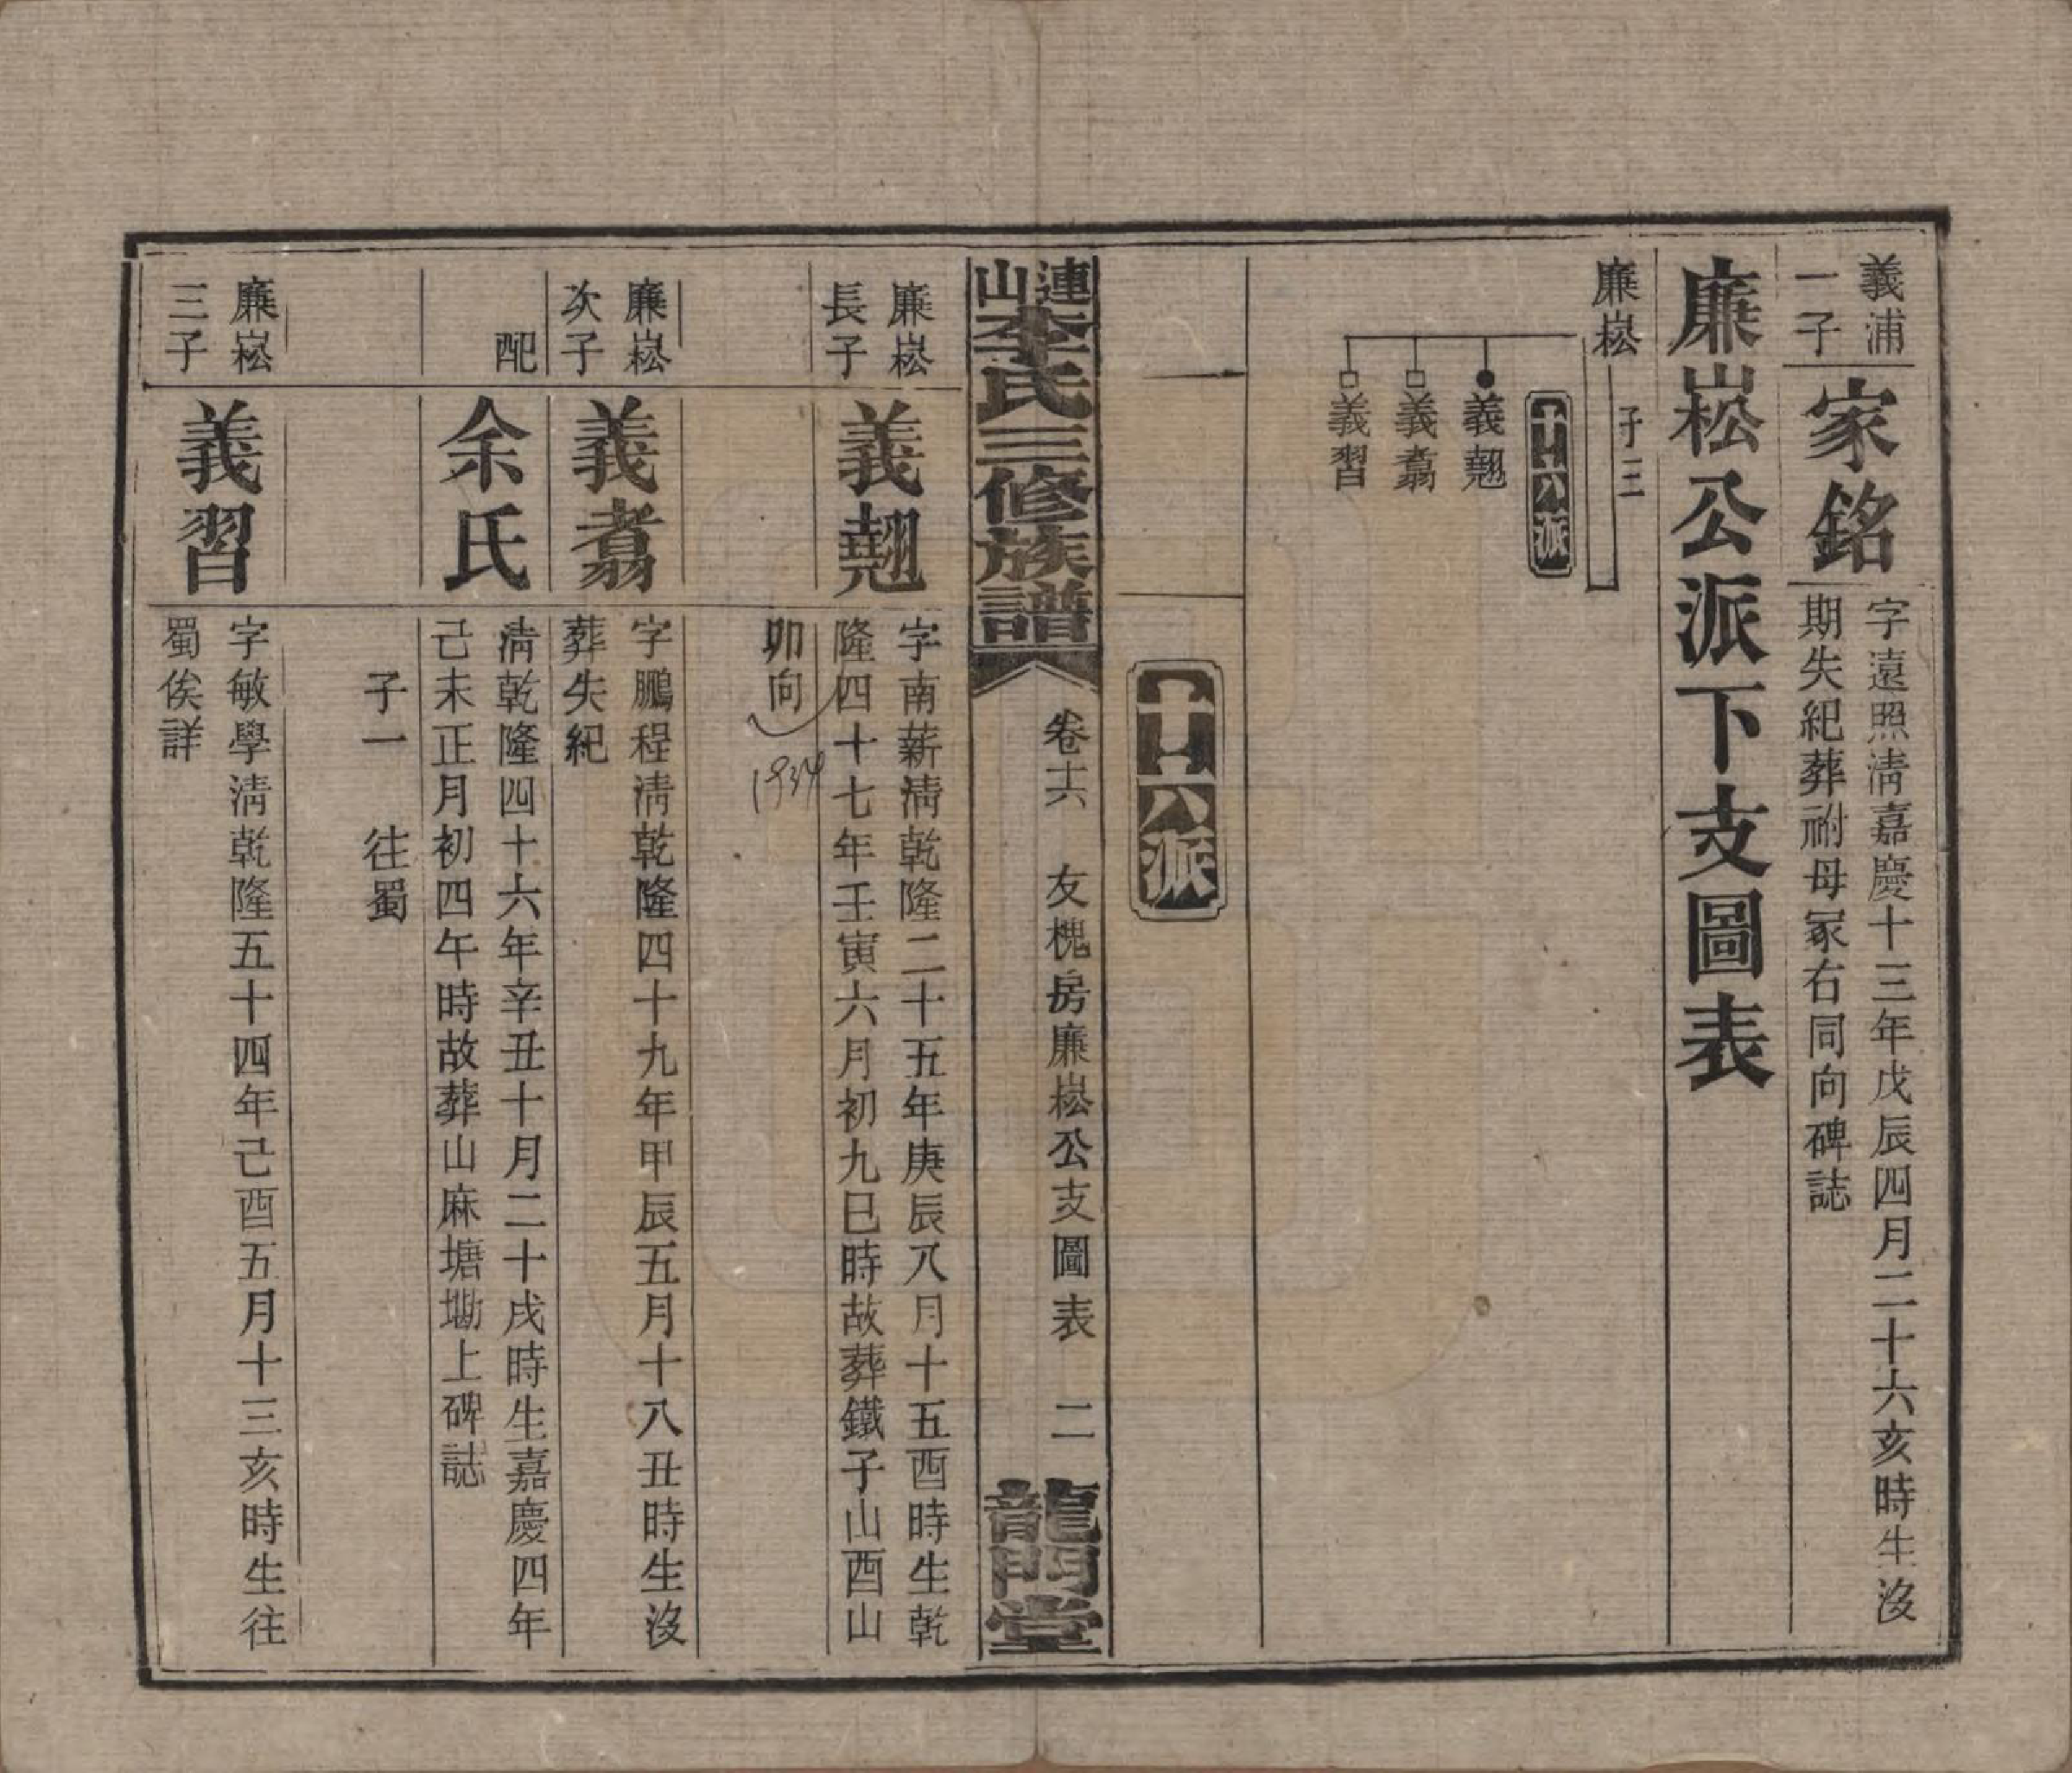 義浦
一子
家銘
字遠照淸嘉慶十三年戊辰四月二十六亥時生沒
期失紀葬祔母冢右同向碑誌
廉崧公派下支圖表
廉崧
子三
十六派
義翹
義翥
義習
十六派
連山李氏三修族譜
卷十六 友槐房廉崧公支圖表 二
龍門堂
廉崧
長子
義翹
字南薪淸乾隆二十五年庚辰八月十五酉時生乾
隆四十七年壬寅六月初九巳時故葬鐵子山酉山
卯向
1934
廉崧
次子
義翥
字鵬程淸乾隆四十九年甲辰五月十八丑時生沒
葬失紀
配
余氏
淸乾隆四十六年辛丑十月二十戌時生嘉慶四年
己未正月初四午時故葬山麻塘塝上碑誌
子一 往蜀
廉崧
三子
義習
字敏學淸乾隆五十四年己酉五月十三亥時生往
蜀俟詳